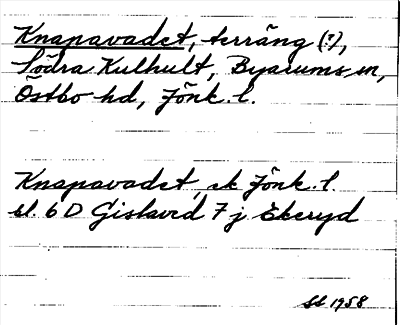 Knapavadet, terräng (?),
Södra Kulhult, Byarums sn,
Östbo hd, Jönk. l.
Knapavadet, ek Jönk. l
bl. 6 D Gislaved 7 j Ekeryd
SS 1958